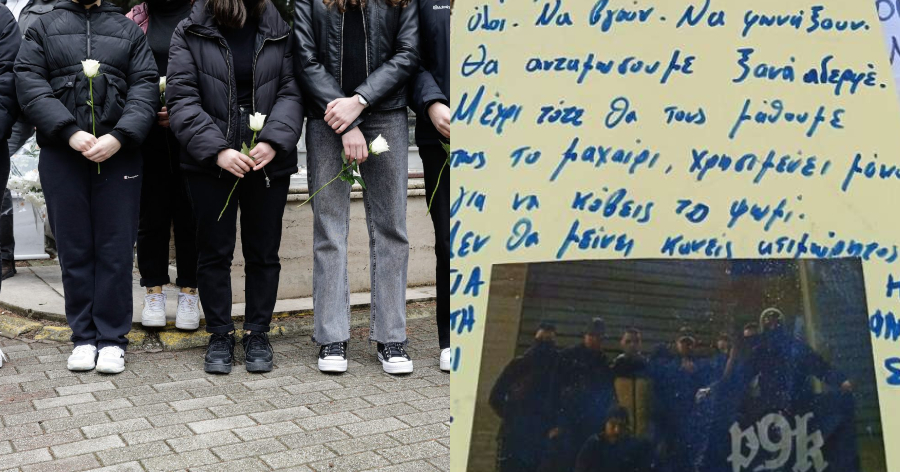 όλοι. Να βγούν. Να φωνάξουν.
Θα ανταμωσουμε ξανά αδερφέ.
Μέχρι τότε θα τους μάθουμε
πως το μαχαίρι, χρησιμεύει μόνο
για να κόβεις το ψωμί.
Δεν θα μείνει κανείς ατιμώρητος
ΓΙΑ
p9k